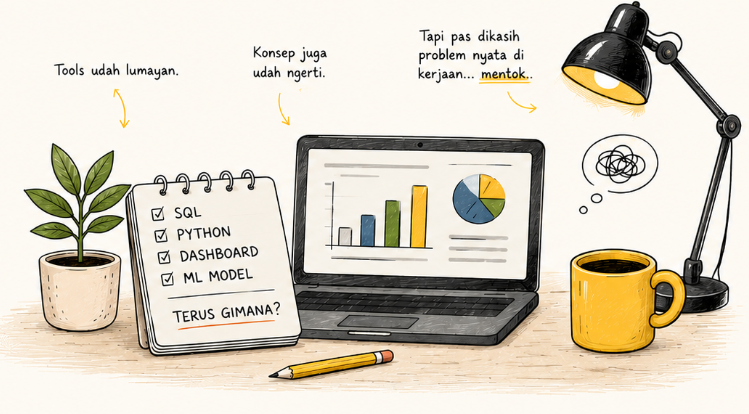 Tools udah lumayan.
Konsep juga
udah ngerti.
Tapi pas dikasih
problem nyata di
kerjaan... mentok..
SQL
PYTHON
DASHBOARD
ML MODEL
TERUS GIMANA?